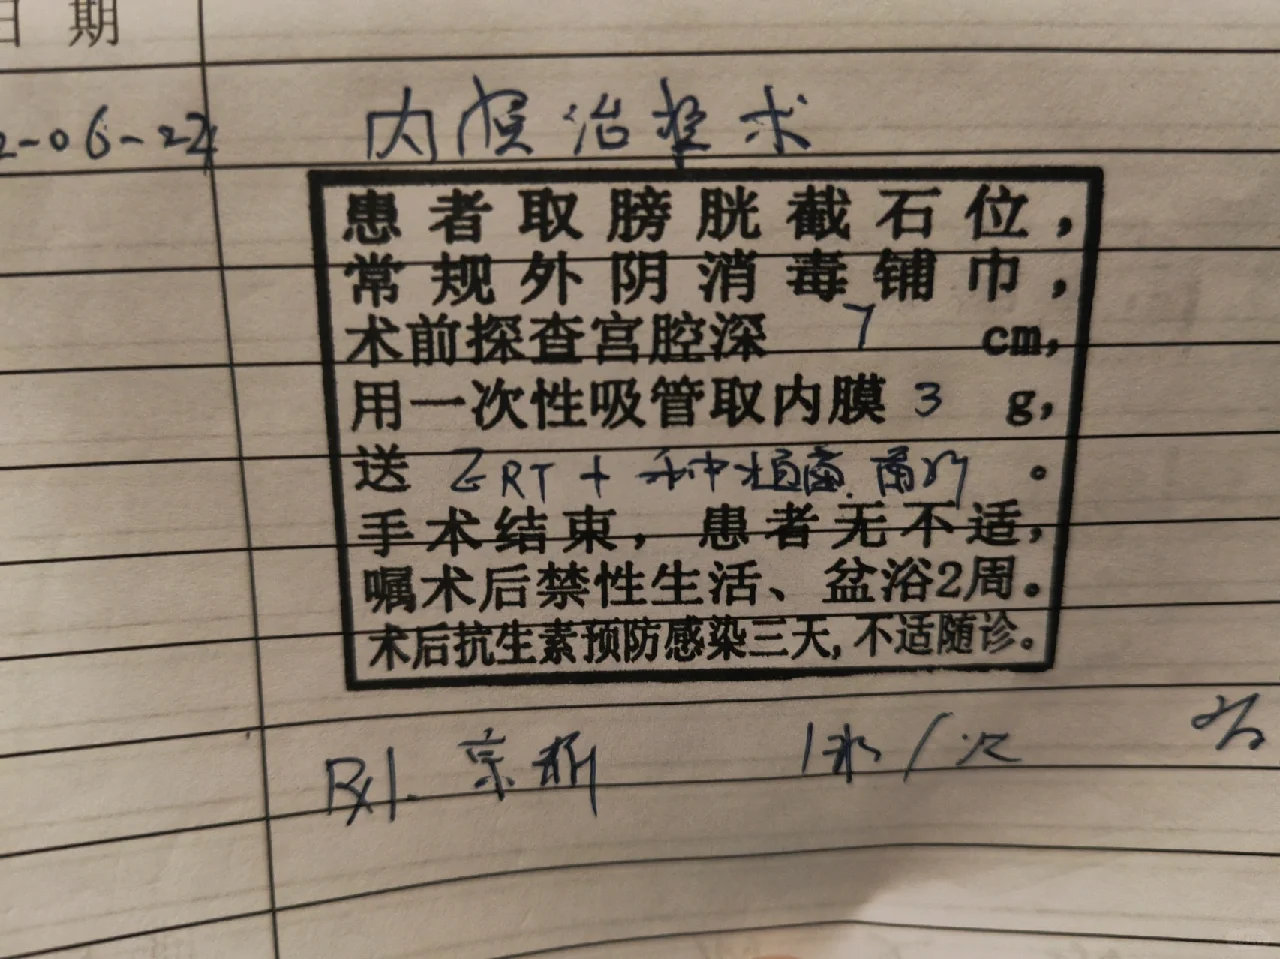 日 期
2-06-22
内膜治整术
患者取膀胱截石位，
常规外阴消毒铺巾，
术前探查宫腔深 7 cm，
用一次性吸管取内膜 3 g，
送 ERT + 种植菌、菌 。
手术结束，患者无不适，
嘱术后禁性生活、盆浴2周。
术后抗生素预防感染三天，不适随诊。
Rx1. 1 / 次